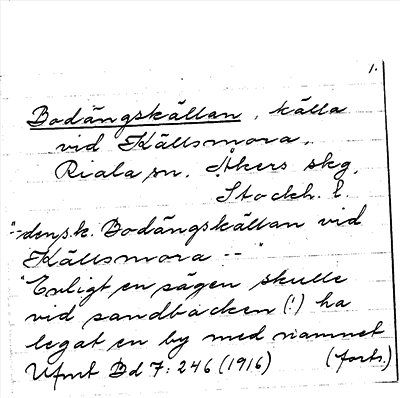 1.
Bodängskällan, källa
vid Källsmora,
Riala sn. Åkers skg,
Stockh. l.
"-- den s.k. Bodängskällan vid
Källsmora --"
"Enligt en sägen skulle
vid sandbacken (!) ha
legat en by med namnet
Ufmt Bd 7: 246 (1916) (forts.)